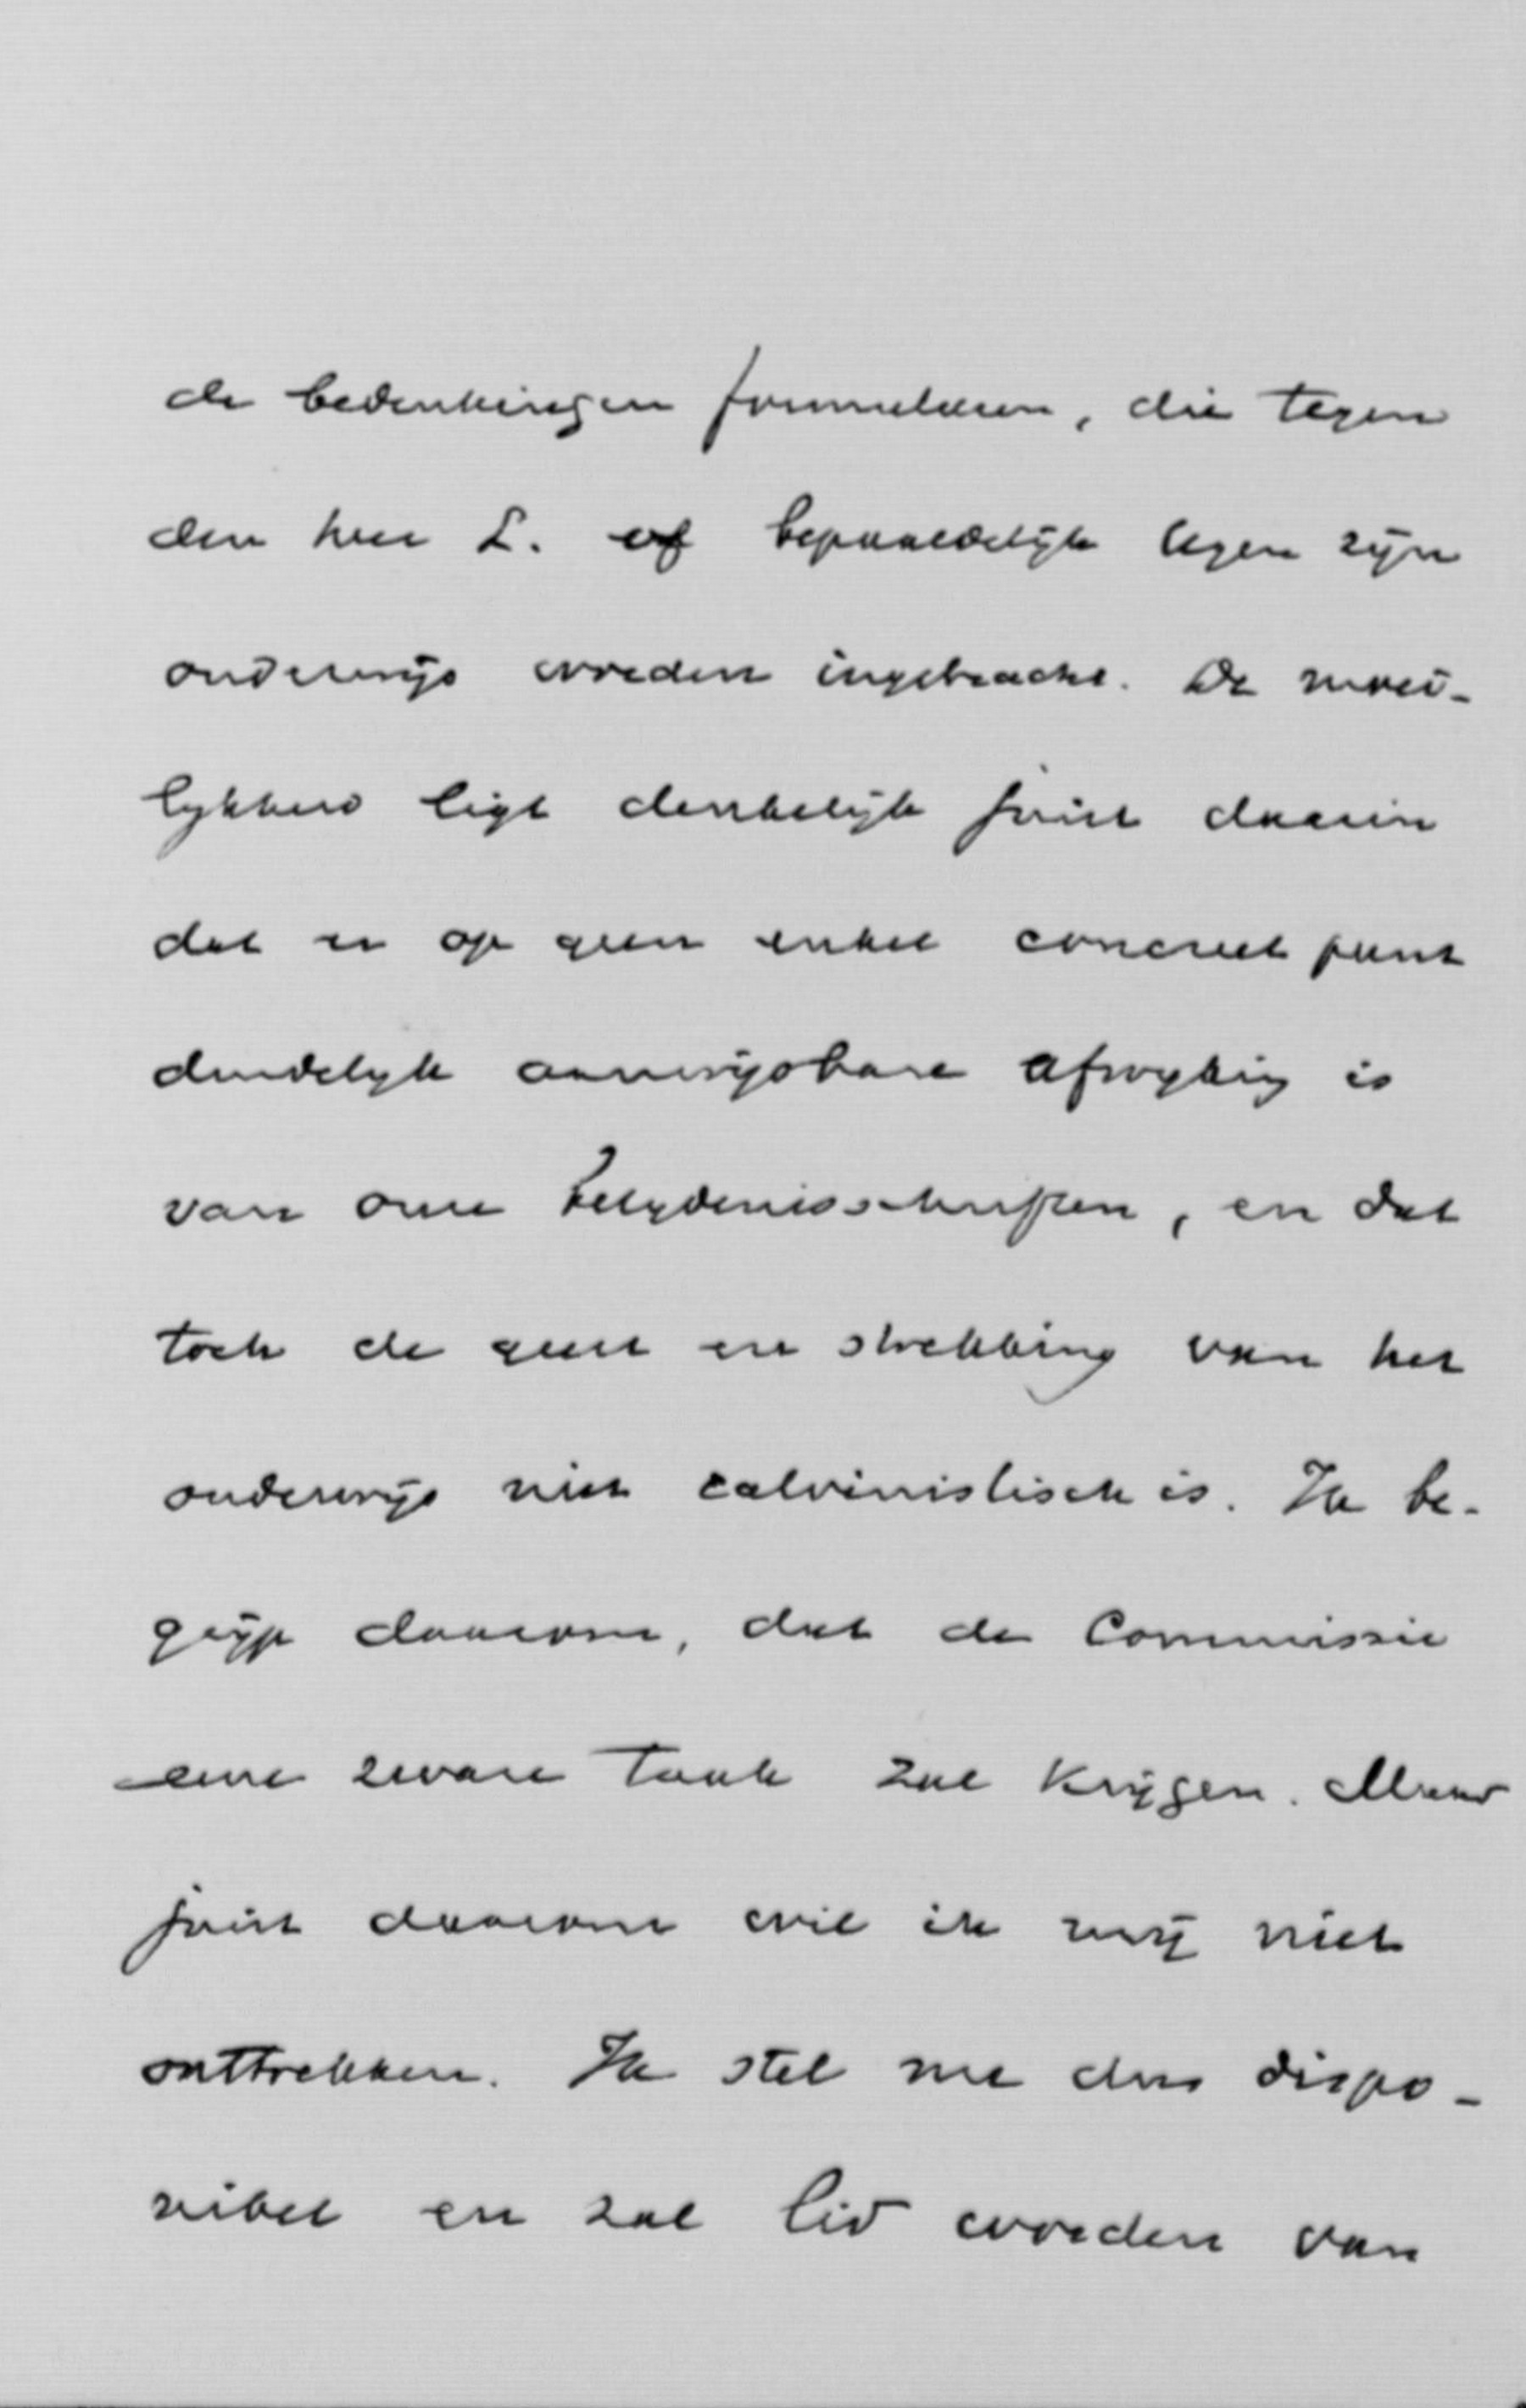 de bedenkingen formuleeren, die tegen
den heer L. of bepaaldelijk tegen zijn
onderwijs worden ingebracht. De moei-
lykheid ligt denkelijk juist daarin
dat er op geen enkel concreet punt
duidelyk aanwijsbare afwyking is
van onze belydenisschriften, en dat
toch de geest en strekking van het
onderwijs niet calvinistisch is. Ik be-
grijp daarom, dat de Commissie
eene zware taak zal krijgen. Maar
juist daarom wil ik mij niet
onttrekken. Ik stel me dus dispo-
nibel en zal lid worden van